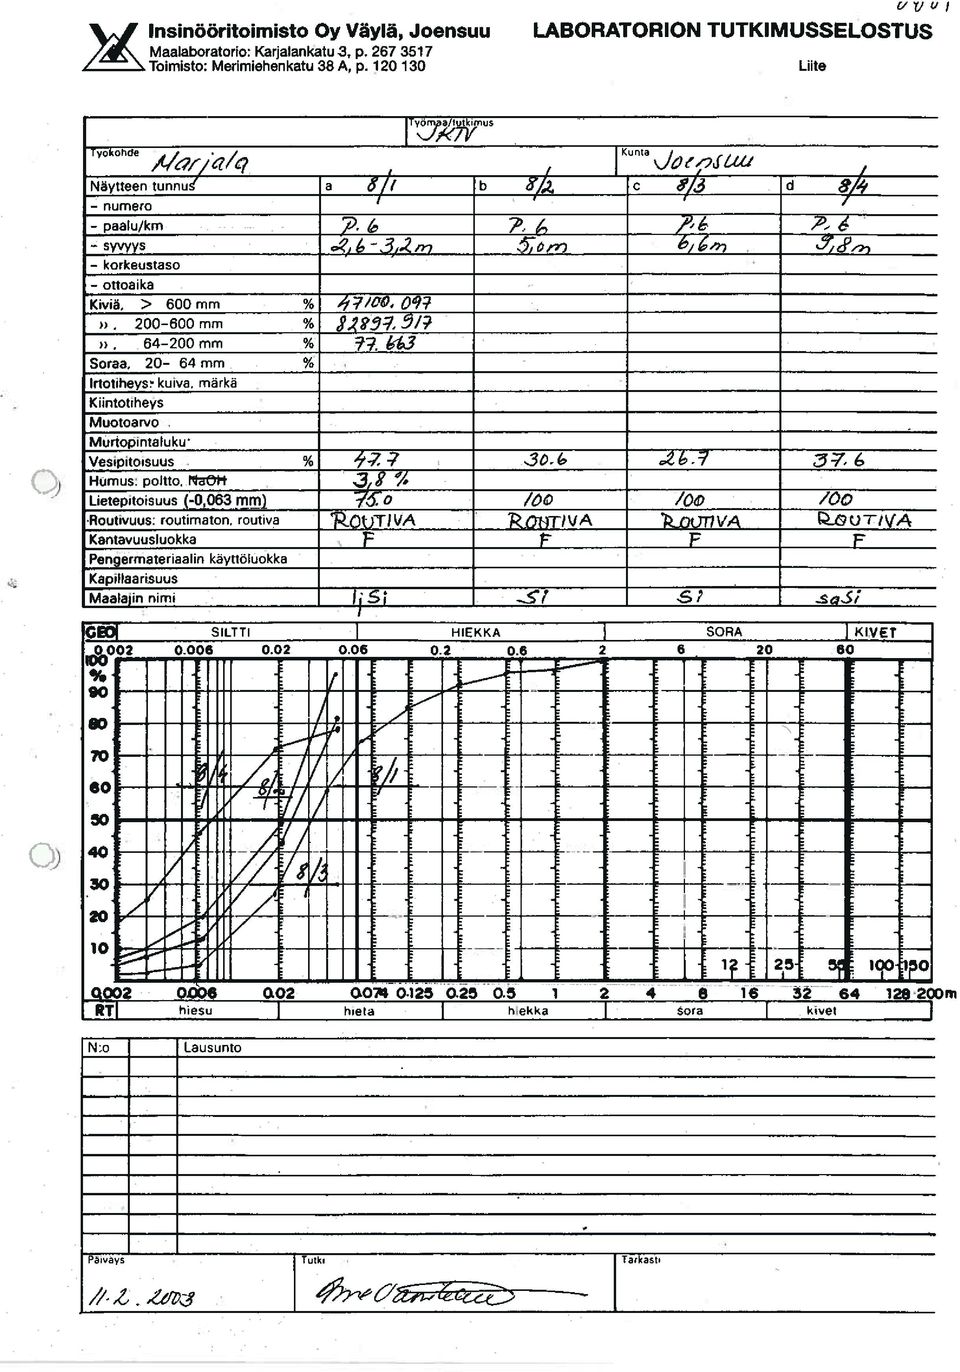 Insinööritoimisto Oy Väylä, Joensuu
Maalaboratorio: Karjalankatu 3, p. 267 3517
Toimisto: Merimiehenkatu 38 A, p. 120 130
LABORATORION TUTKIMUSSELOSTUS
Liite
Työmaa/tutkimus JKTV
Työkohde Marjala Kunta Joensuu
Näytteen tunnus a 8/1 b 8/2 c 8/3 d 8/4
- numero
- paalu/km P. 6 P. 6 P. 6 P. 6
- syvyys 2,6-3,2m 5,0m 6,6m 9,8m
- korkeustaso
- ottoaika
Kiviä, > 600 mm % 47100.097
» , 200-600 mm % 82897.917
» , 64-200 mm % 77.663
Soraa, 20- 64 mm %
Irtotiheys: kuiva, märkä
Kiintotiheys
Muotoarvo
Murtopintaluku
Vesipitoisuus % 47.7 30.6 26.7 37.6
Humus: poltto, NaOH 3,8 %
Lietepitoisuus (-0,063 mm) 75.0 100 100 100
Routivuus: routimaton, routiva ROUTIVA ROUTIVA ROUTIVA ROUTIVA
Kantavuusluokka F F F F
Pengermateriaalin käyttöluokka
Kapillaarisuus
Maalajin nimi ljSi Si Si saSi
GEO SILTTI HIEKKA SORA KIVET
0.002 0.006 0.02 0.06 0.2 0.6 2 6 20 60
100
%
90
80
70
8/4 8/1
60
8/2
50
40
8/3
30
20
10
12 25 55 100 150
0.002 0.006 0.02 0.074 0.125 0.25 0.5 1 2 4 8 16 32 64 128 200mm
RT hiesu hieta hiekka sora kivet
N:o Lausunto
Päiväys Tutki Tarkasti
11.2.2003